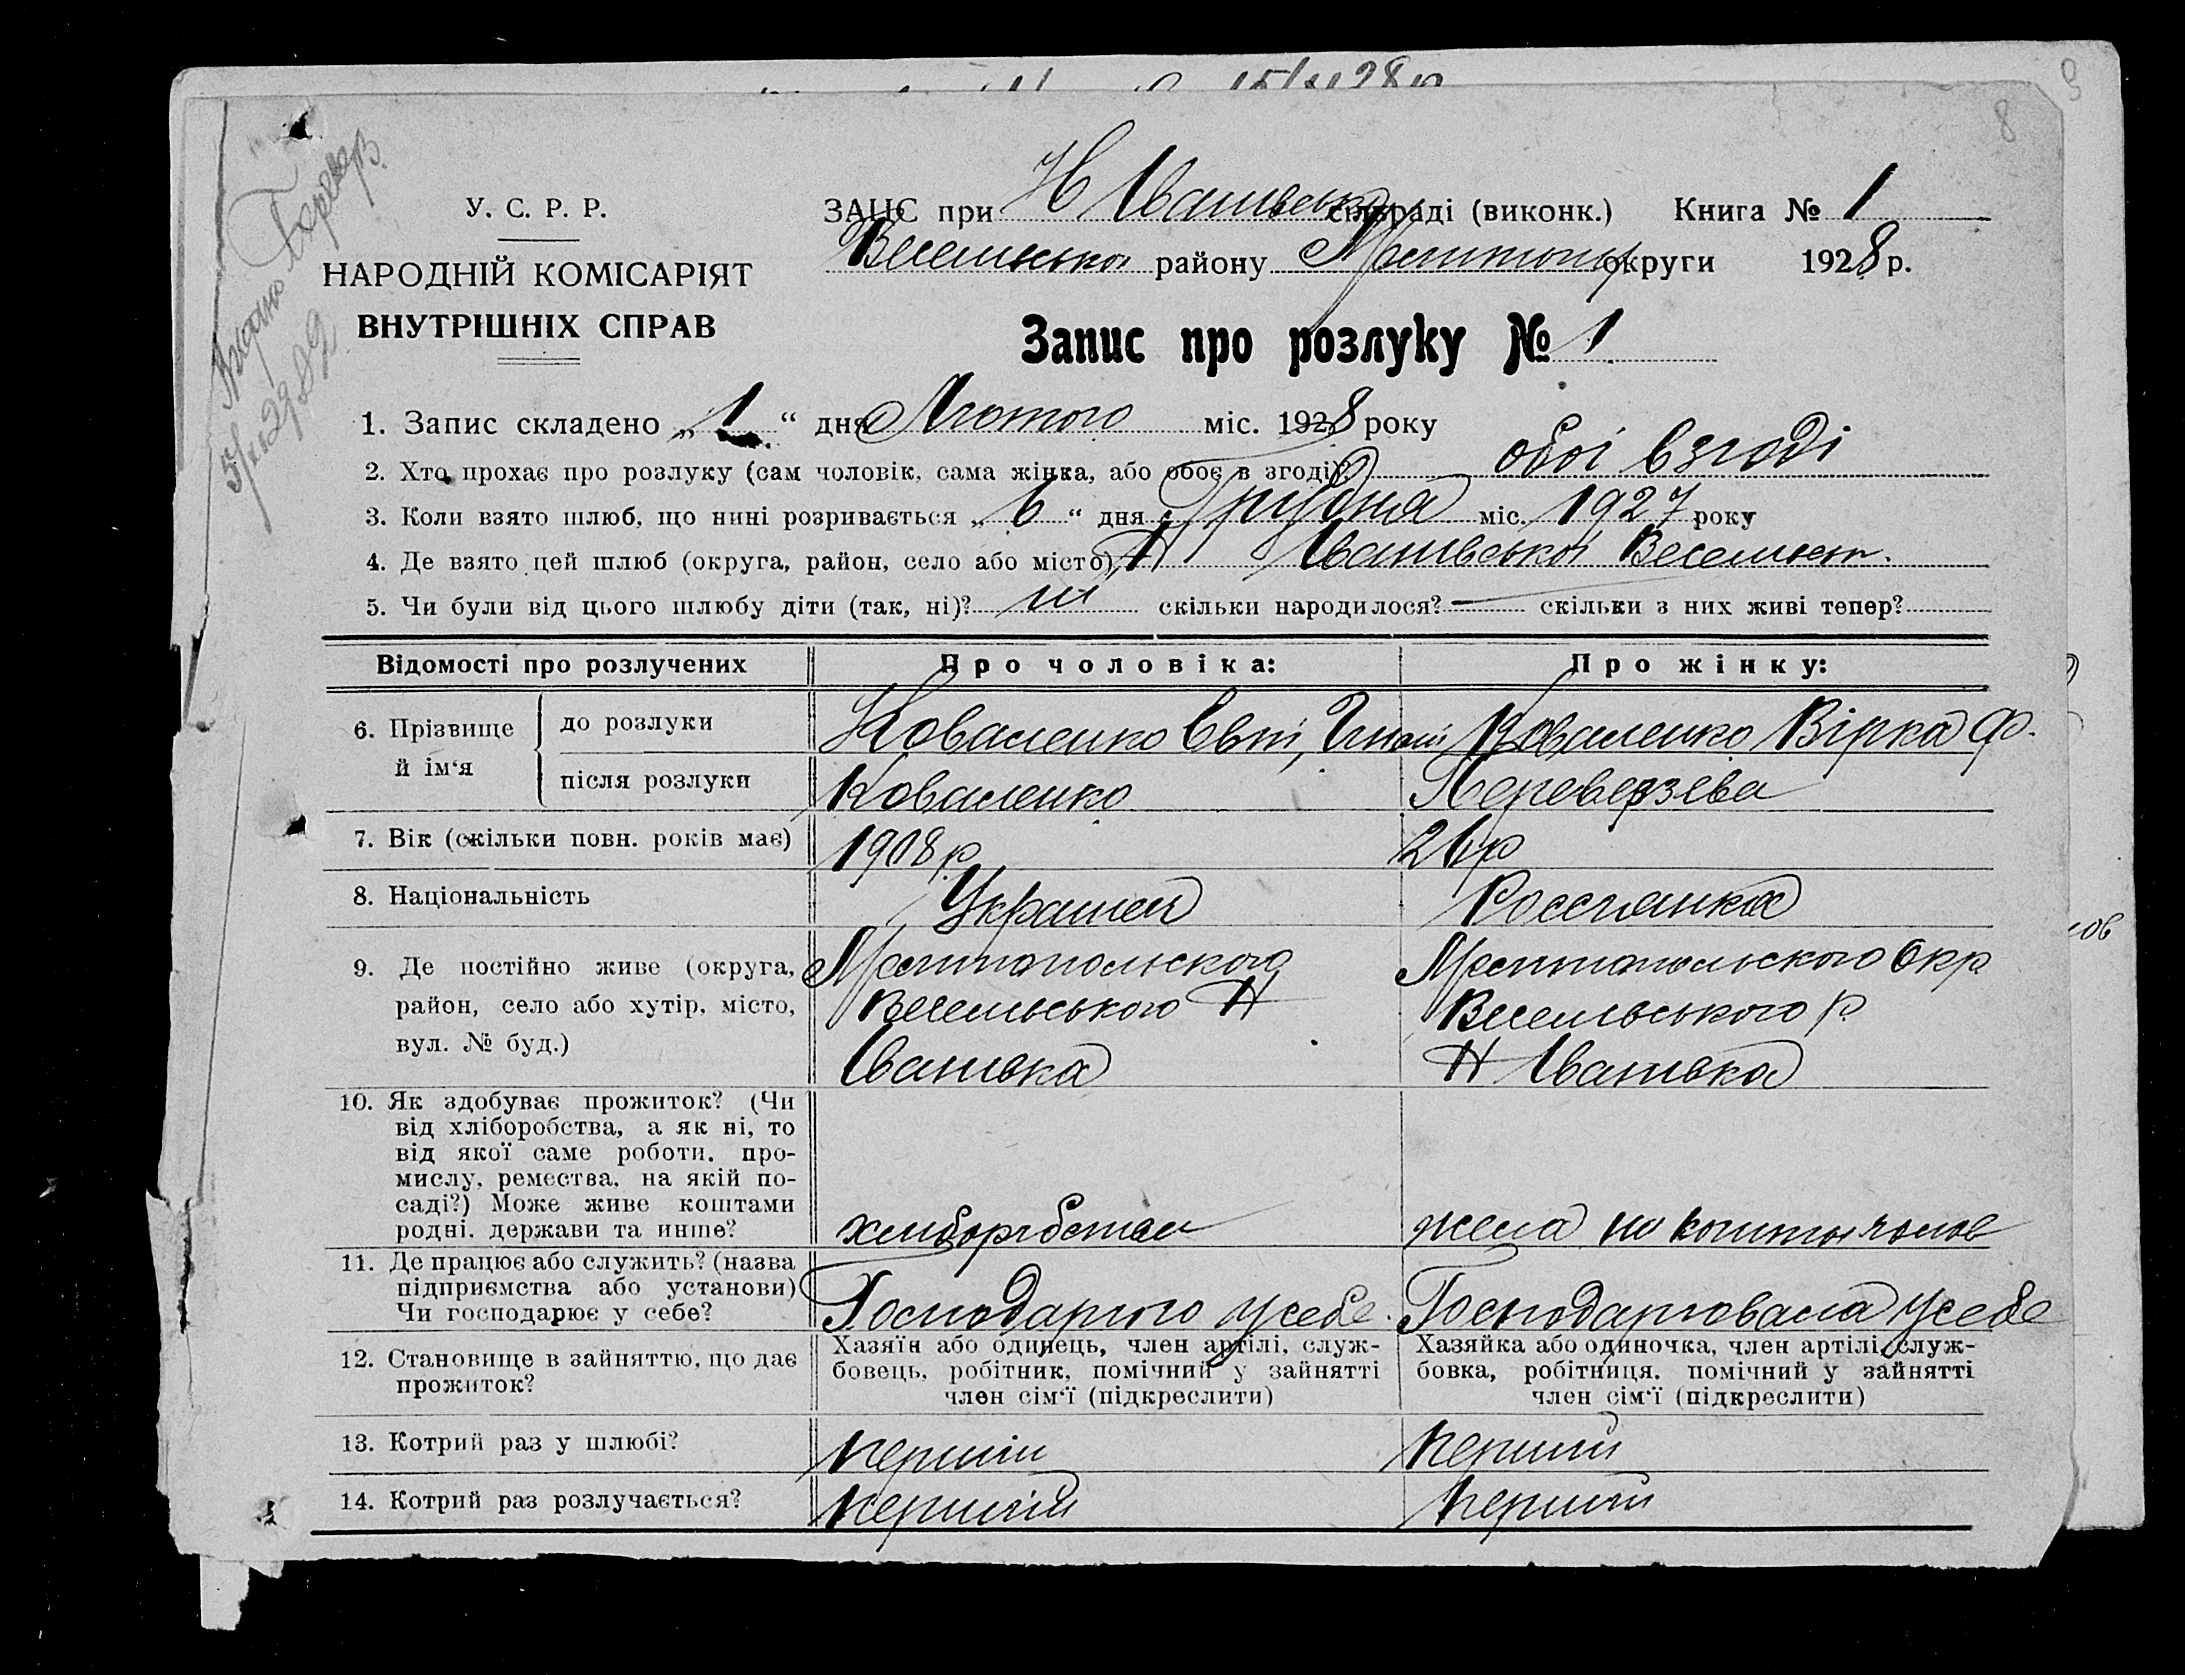 15/II 28 р
9
8
Видано Перевер.
5/II 29
У. С. Р. Р.
НАРОДНІЙ КОМІСАРІЯТ
ВНУТРІШНІХ СПРАВ
ЗАЦС при Н Іванівській сільраді (виконк.) Книга № 1
Веселівського району Мелитопол округи 1928 р.
Запис про розлуку № 1
1. Запис складено „ 1 “ дня Лютого міс. 1928 року
2. Хто прохає про розлуку (сам чоловік, сама жінка, або обоє в згоді)? обоі взгоді
3. Коли взято шлюб, що нині розривається „ 6 “ дня Грудня міс. 1927 року
4. Де взято цей шлюб (округа, район, село або місто) Н Іванівськоі Веселівськ.
5. Чи були від цього шлюбу діти (так, ні)? ні скільки народилося? — скільки з них живі тепер?
Відомості про розлучених Про чоловіка: Про жінку:
6. Прізвище й ім‘я
до розлуки Коваленко Євт, Гнат Коваленко Вірка Ф.
після розлуки Коваленко Переверзева
7. Вік (скільки повн. років має) 1908 р 21 р
8. Національність Украінец Россіянка
9. Де постійно живе (округа, район, село або хутір, місто, вул. № буд.)
Мелитопольского Мелитопольского Окр
Весельського Н Весельського р
Іванівка Н Іванівка
10. Як здобуває прожиток? (Чи
від хліборобства, а як ні, то
від якої саме роботи, про-
мислу, ремества, на якій по-
саді?) Може живе коштами
родні, держави та инше?
хліборобством жена на кошты чолов
11. Де працює або служить? (назва
підприємства або установи)
Чи господарює у себе?
Господарюю усебе. Господарювала усебе
12. Становище в зайняттю, що дає
прожиток?
Хазяїн або одинець, член артілі, служ-
бовець, робітник, помічний у зайнятті
член сім‘ї (підкреслити)
Хазяйка або одиночка, член артілі, служ-
бовка, робітниця, помічний у зайнятті
член сім‘ї (підкреслити)
13. Котрий раз у шлюбі? первий первий
14. Котрий раз розлучається? первий первий